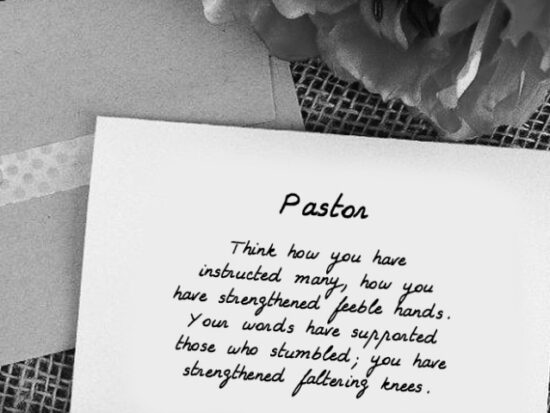 Pastor
Think how you have
instructed many, how you
have strengthened feeble hands.
Your words have supported
those who stumbled; you have
strengthened faltering knees.